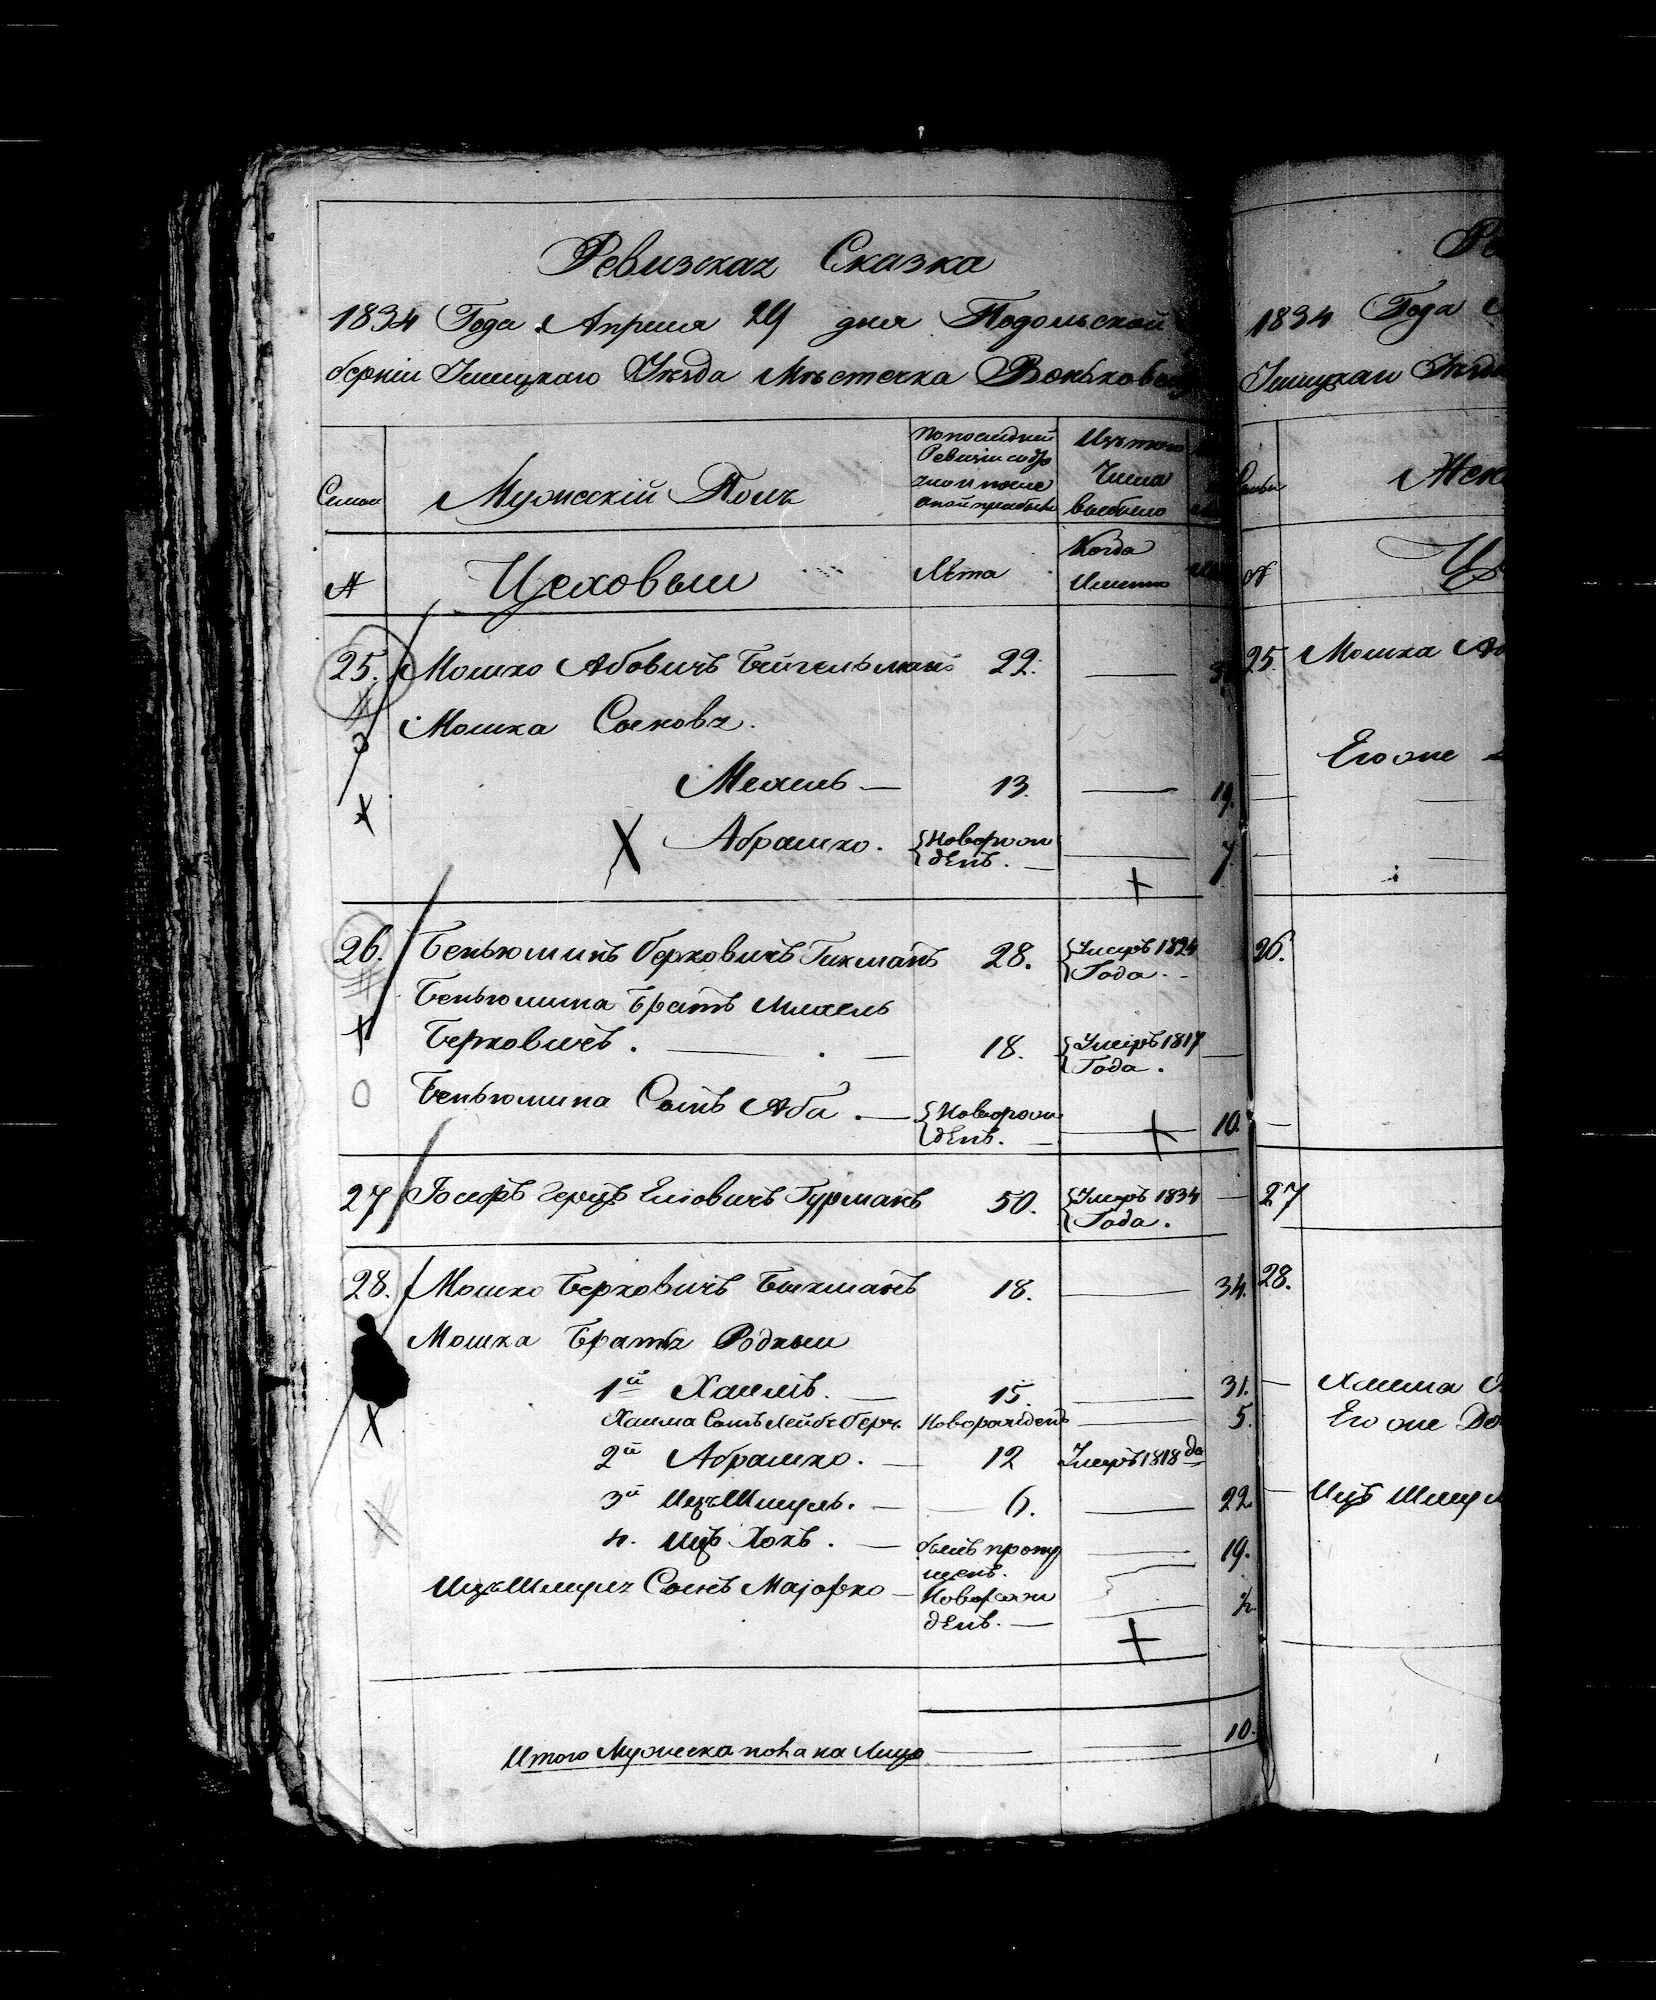 Ревизская Сказка
1834 Года Апреля 29 дня Подольской
берніи Ушицкаго Уезда Местечка Воньковец
Семьи
Мужескій Полъ
По последней
Ревизіи состо
яло и после
оной прибыло
Изъ того
Числа
выбыло
№
Цеховыи
Лета
Когда
Имянно
25. Мошко Абовичъ Бейгельманъ 22. — 
Мошка Сыновъя.
Мехель — 13. — 19.
Абрамко. Новорож — 7.
денъ. —
26. Беньюминъ Берковичъ Гикманъ 28. Умеръ 1824
Года.
Беньюмина Братъ Михель
Берковичъ. — 18. Умеръ 1817
Года.
Беньюмина Сынъ Аба. — Новорож — 10.
денъ. —
27 Іосефъ Герцъ Еліовичъ Гурманъ 50. Умеръ 1834 —
Года.
28. Мошко Берковичъ Бикманъ 18. — 34.
Мошка Братья Родныи
1й Хаимъ. — 15. — 31.
Хаима Сынъ Лейбъ Беръ Новорожденъ — 5.
2й Абрамко. — 12 Умеръ 1818 да
3й Ицъ Шмуль. — 6. — 22
4. Ицъ Хокъ. — былъ пропу — 19.
щенъ.
Ицъ Шмуля Сынъ Маіорко — Новорож — 2.
денъ. —
Итого Мужеска пола на Лицо — 10.
1834 Года
Ушицкаго Уезда
Семьи
№
25 Мошка
Его
26.
27
28.
Хаима
Его
Ицъ Шмул